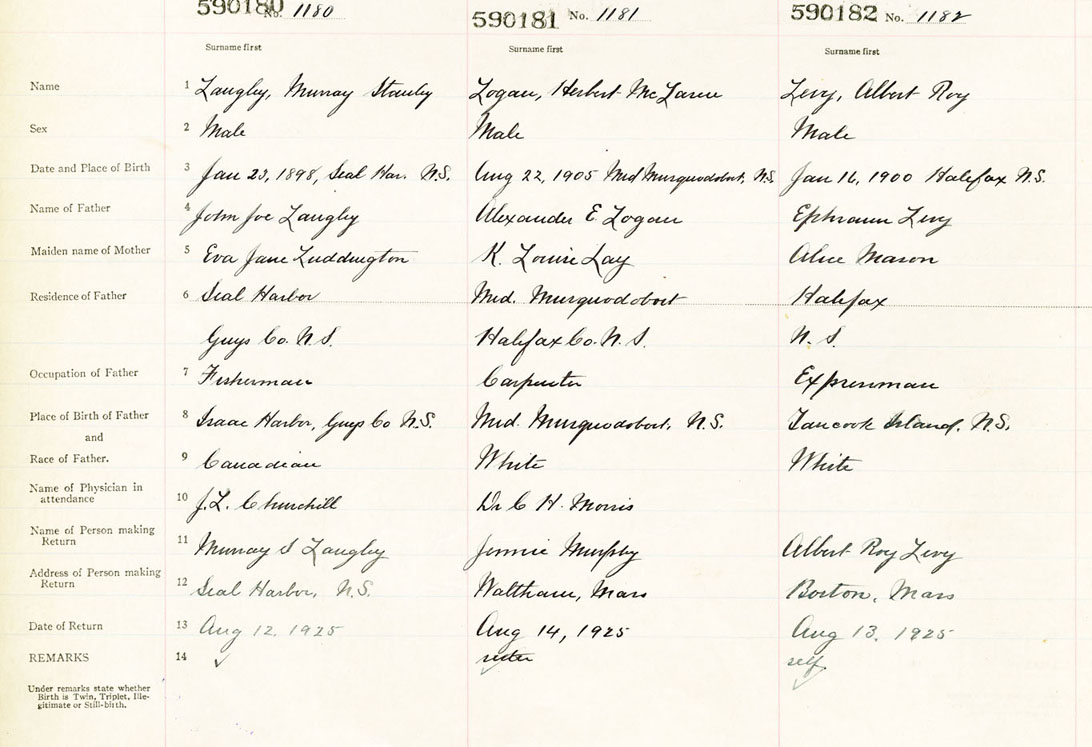 590180 No. 1180 590181 No. 1181 590182 No. 1182
Surname first Surname first Surname first
Name 1 Langley, Murray Stanley Logan, Herbert McLaren Levy, Albert Roy
Sex 2 Male Male Male
Date and Place of Birth 3 Jan 23, 1898, Seal Har. N.S. Aug 22, 1905 Mid Musquodoboit, N.S. Jan 16, 1900 Halifax N.S.
Name of Father 4 John Joe Langley Alexander E. Logan Ephraim Levy
Maiden name of Mother 5 Eva Jane Luddington K. Louise Lay Alice Mason
Residence of Father 6 Seal Harbor Mid. Musquodoboit Halifax
Guys Co. N.S. Halifax Co. N.S. N.S.
Occupation of Father 7 Fisherman Carpenter Expressman
Place of Birth of Father 8 Isaac Harbor, Guys Co N.S. Mid. Musquodoboit, N.S. Tancook Island, N.S.
and
Race of Father. 9 Canadian White White
Name of Physician in
attendance 10 J.L. Churchill Dr C H. Morris
Name of Person making
Return 11 Murray S Langley Jennie Murphy Albert Roy Levy
Address of Person making
Return 12 Seal Harbor, N.S. Waltham, Mass Boston, Mass
Date of Return 13 Aug 12, 1925 Aug 14, 1925 Aug 13, 1925
REMARKS 14 sister self
Under remarks state whether
Birth is Twin, Triplet, Ille-
gitimate or Still-birth.